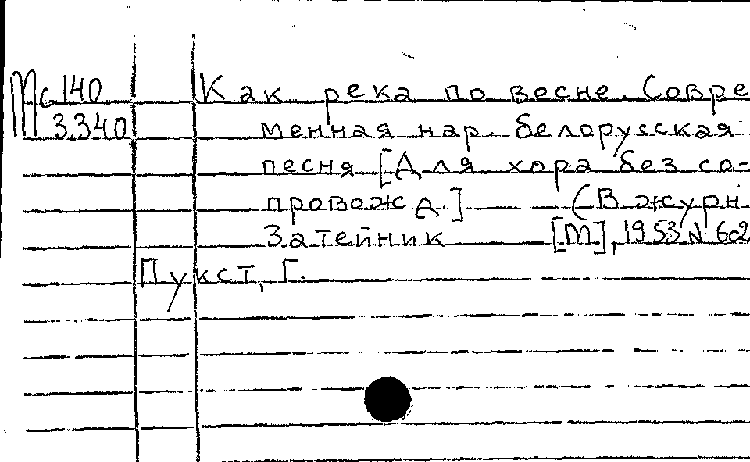 Мс 140 Как река по весне. Совре
3.340 менная нар. белорусская
песня [Для хора без со-
провожд.] (В журн
Затейник [М], 1953 №
Пукст, Г.